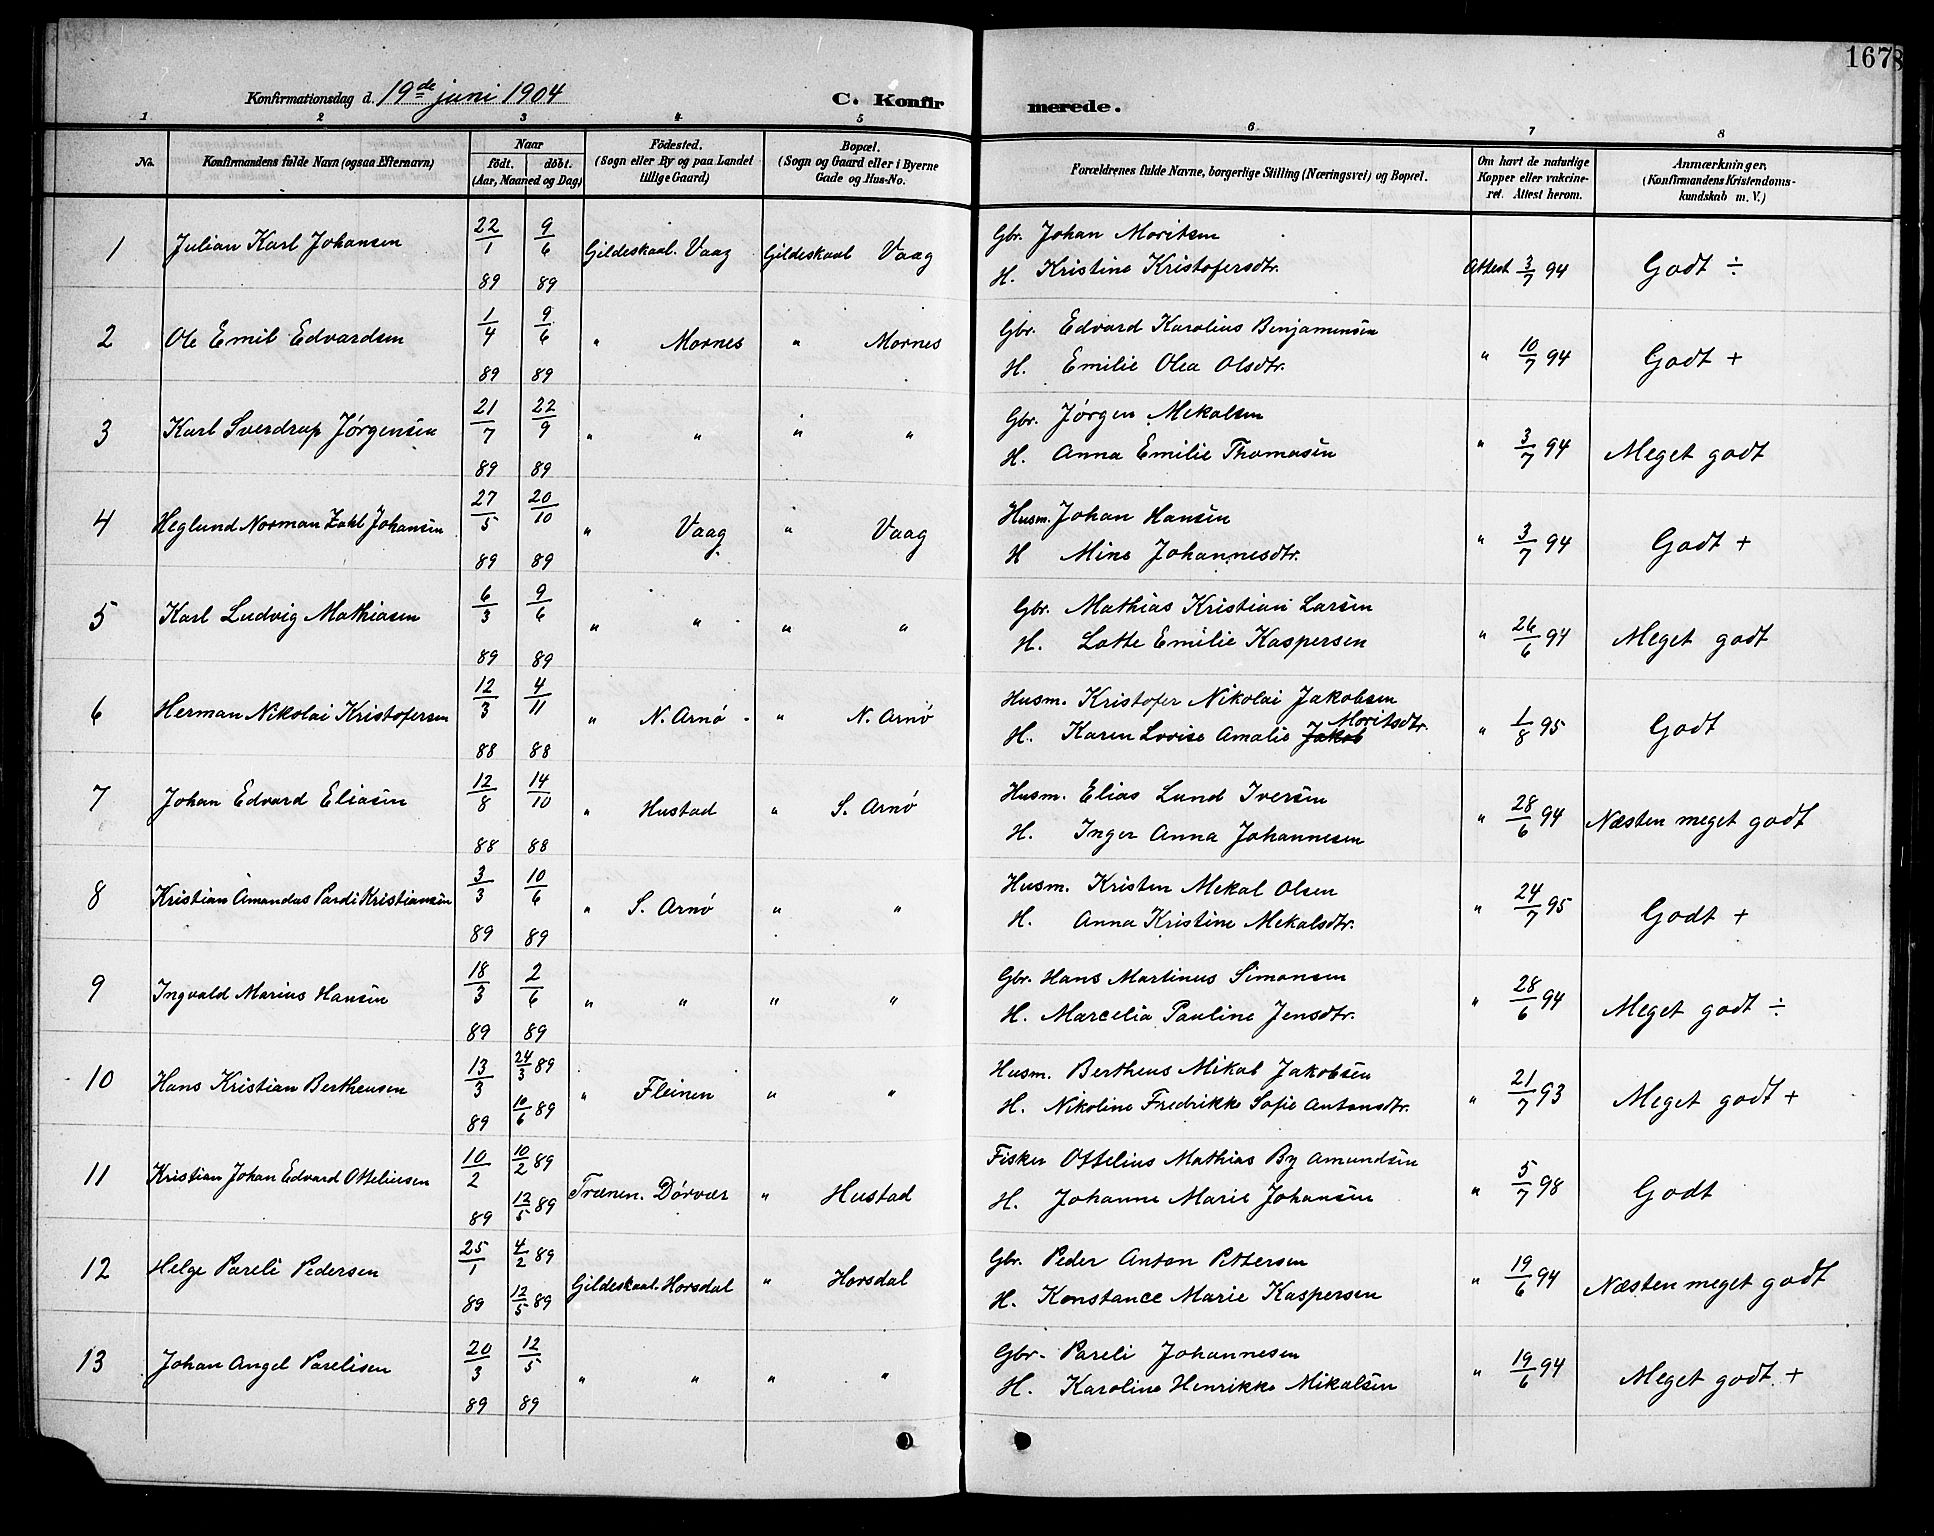 167
Konfirmationsdag d. 19de juni 1904 C. Konfirmerede.
1 2 3 4 5 6 7 8
No. Konfirmandens fulde Navn (ogsaa Efternavn) Naar født. døbt. (Aar, Maaned og Dag) Fødested. (Sogn eller By og paa Landet tillige Gaard) Bopæl. (Sogn og Gaard eller i Byerne Gade og Hus-No. Forældrenes fulde Navne, borgerlige Stilling (Næringsvei) og Bopæl. Om havt de naturlige Kopper eller vakcineret. Attest herom. Anmærkninger, (Konfirmandens Kristendomskundskab m. V.)
1 Julian Karl Johansen 22/1 89 9/6 89 Gildeskaal. Vaag Gildeskaal Vaag Gbr. Johan Moritsen
H. Kristine Kristofersdtr. Attest 3/7 94 Godt ÷
2 Ole Emil Edvardsen 1/4 89 9/6 89 " Mornes " Mornes Gbr. Edvard Karolius Benjaminsen
H. Emilie Olea Olsdtr. " 10/7 94 Godt +
3 Karl Sverdrup Jørgensen 21/7 89 22/9 89 " " " " Gbr. Jørgen Mekalsen
H. Anna Emilie Thomasen " 3/7 94 Meget godt
4 Heglund Norman Zahl Johansen 27/5 89 20/10 89 " Vaag " Vaag Husm. Johan Hansen
H Mine Johannesdtr. " 3/7 94 Godt +
5 Karl Ludvig Mathiasen 6/3 89 9/6 89 " " " " Gbr. Mathias Kristian Larsen
H. Lotte Emilie Kaspersen " 26/6 94 Meget godt
6 Herman Nikolai Kristofersen 12/3 88 4/11 88 " N. Arnø " N. Arnø Husm. Kristofer Nikolai Jakobsen
H. Karen Lovise Amalie Jakob Moritsdtr. " 1/8 95 Godt
7 Johan Edvard Eliasen 12/8 88 14/10 88 " Hustad " S. Arnø Husm. Elias Lund Iversen
H. Inger Anna Johannesen " 28/6 94 Næsten meget godt
8 Kristian Amandus Pardi Kristiansen 3/3 89 10/6 89 " S. Arnø " " Husm. Kristen Mekal Olsen
H. Anna Kristine Mekalsdtr. " 24/7 95 Godt +
9 Ingvald Marius Hansen 18/3 89 2/6 89 " " " " Gbr. Hans Martinus Simonsen
H. Marcelia Pauline Jensdtr. " 28/6 94 Meget godt ÷
10 Hans Kristian Bertheusen 13/3 89 24/3 89 10/6 89 " Fleinen " " Husm. Bertheus Mikal Jakobsen
H. Nikoline Fredrikke Sofie Antonsdtr. " 21/7 93 Meget godt +
11 Kristian Johan Edvard Otteliusen 10/2 89 10/2 89 12/5 89 Trænen. Dørvær " Hustad Fisker Ottelius Mathias By Amundsen
H. Johanne Marie Johansen " 5/7 98 Godt
12 Helge Pareli Pedersen 25/1 89 4/2 89 12/5 89 Gildeskaal. Horsdal " Horsdal Gbr. Peder Anton Pettersen
H. Konstance Marie Kaspersen " 19/6 94 Næsten meget godt
13 Johan Angel Parelisen 20/3 89 12/5 89 " " " " Gbr. Pareli Johannesen
H. Karoline Henrikke Mikalsen " 19/6 94 Meget godt +